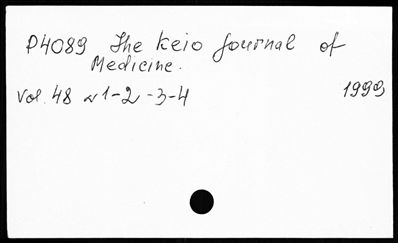 P4089 The Keio Journal of
Medicine.
Vol. 48 N 1-2-3-4 1999